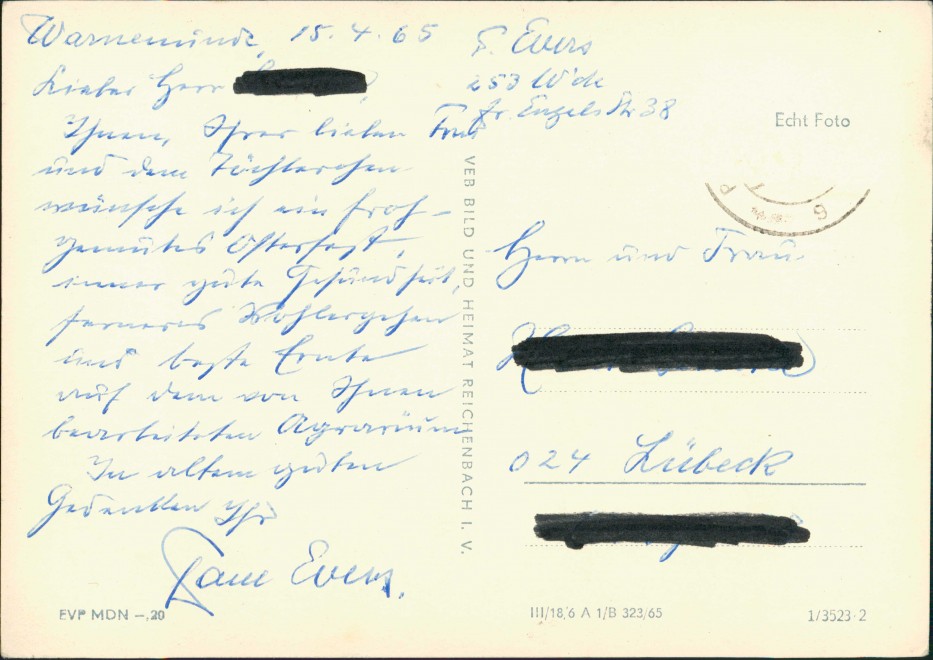 Warnemünde, 15.4.65
Lieber Herr
Ihnen, Ihrer lieben Frau
und dem Töchterchen
wünsche ich ein froh-
gemutes Osterfest,
immer gute Gesundheit,
ferneres Wohlergehen
und beste Ernte
auf dem von Ihnen
bearbeiteten Agrarium
In altem guten
Gedenken Ihr
Evers.
Evers
253 W'de
Fr. Engels Str 38
Echt Foto
VEB BILD UND HEIMAT REICHENBACH I. V.
Herrn und Frau
024 Lübeck
EVP MDN –,20
III/18/6 A 1/B 323/65
1/3523·2